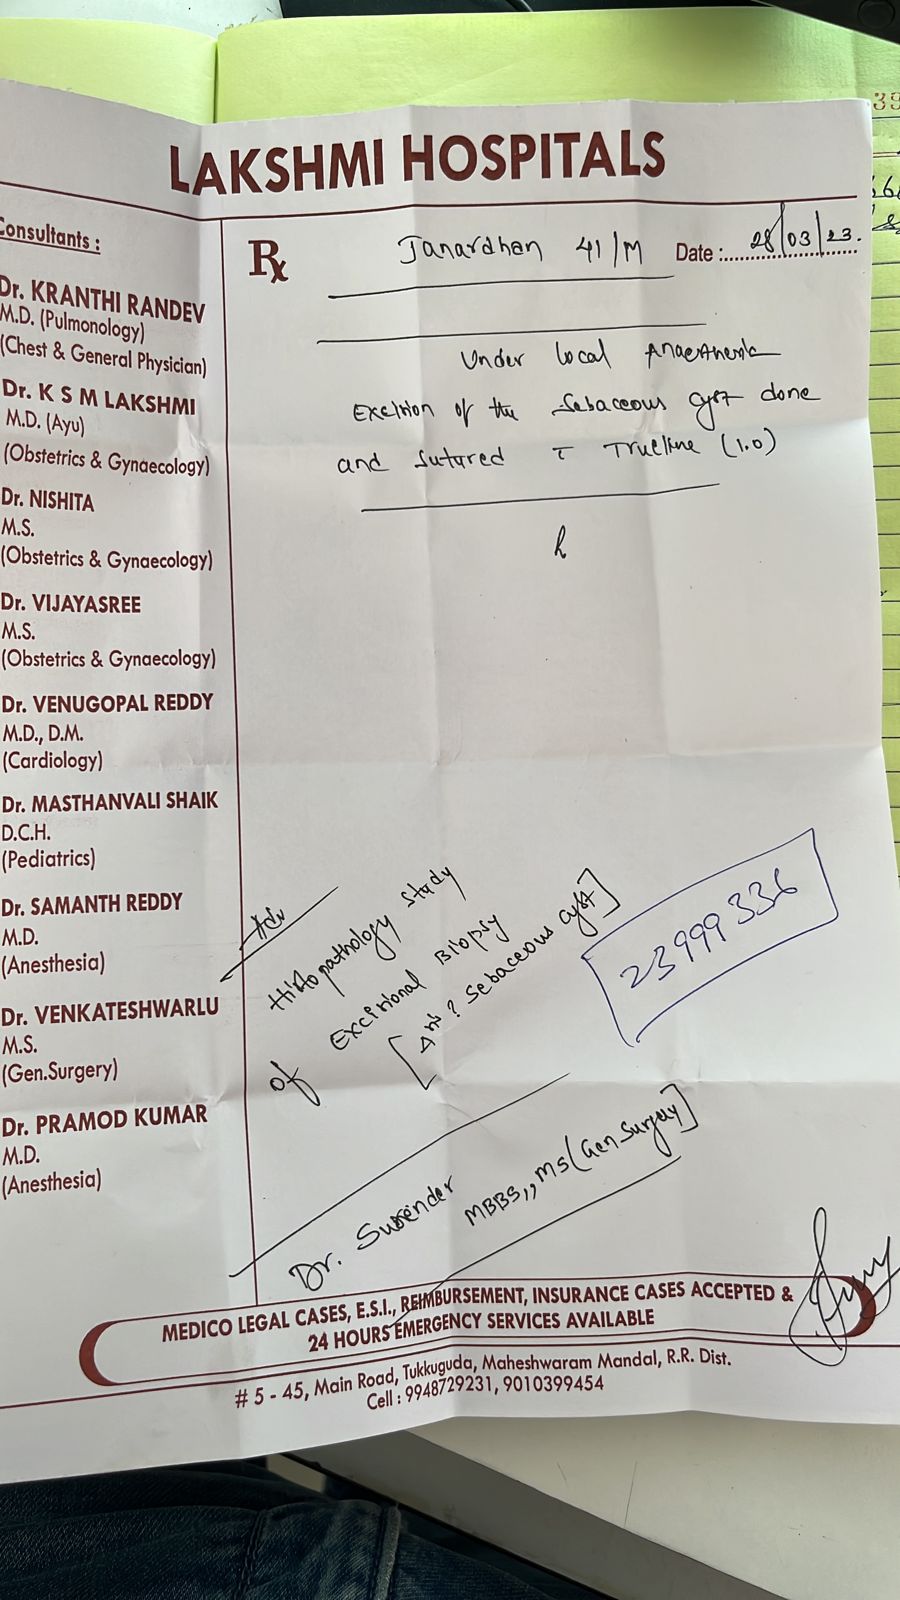 LAKSHMI HOSPITALS
Consultants :
Dr. KRANTHI RANDEV
M.D. (Pulmonology)
(Chest & General Physician)
Dr. K S M LAKSHMI
M.D. (Ayu)
(Obstetrics & Gynaecology)
Dr. NISHITA
M.S.
(Obstetrics & Gynaecology)
Dr. VIJAYASREE
M.S.
(Obstetrics & Gynaecology)
Dr. VENUGOPAL REDDY
M.D., D.M.
(Cardiology)
Dr. MASTHANVALI SHAIK
D.C.H.
(Pediatrics)
Dr. SAMANTH REDDY
M.D.
(Anesthesia)
Dr. VENKATESHWARLU
M.S.
(Gen.Surgery)
Dr. PRAMOD KUMAR
M.D.
(Anesthesia)
Rx
Janardhan 41/M Date : 28/03/23.
Under local Anaesthesia
Excision of the Sebaceous cyst done
and sutured c Trulene (1.0)
Adv
Histopathology study
of Excisional Biopsy
[ ? Sebaceous cyst]
23999336
Dr. Surender
MBBS,, MS(Gen Surgery]
MEDICO LEGAL CASES, E.S.I., REIMBURSEMENT, INSURANCE CASES ACCEPTED &
24 HOURS EMERGENCY SERVICES AVAILABLE
# 5 - 45, Main Road, Tukkuguda, Maheshwaram Mandal, R.R. Dist.
Cell : 9948729231, 9010399454